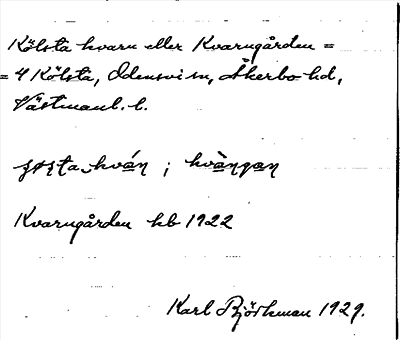 Kölsta kvarn eller Kvarngården =
= 4 Kölsta, Odensvi sn, Åkerbo hd,
Västmanl. l.
kvån ; kvàngan
Kvarngården kb 1922
Karl Björkman 1929.